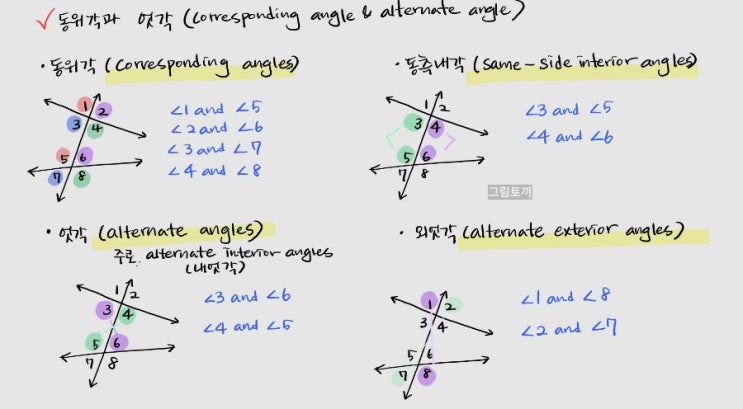 ✓ 동위각과 엇각 (corresponding angle & alternate angle)
· 동위각 (corresponding angles)
1 2
3 4
5 6
7 8
∠1 and ∠5
∠2 and ∠6
∠3 and ∠7
∠4 and ∠8
· 동측내각 (same-side interior angles)
1 2
3 4
5 6
7 8
∠3 and ∠5
∠4 and ∠6
그림토끼
· 엇각 (alternate angles)
주로 alternate interior angles
(내엇각)
1 2
3 4
5 6
7 8
∠3 and ∠6
∠4 and ∠5
· 외엇각 (alternate exterior angles)
1 2
3 4
5 6
7 8
∠1 and ∠8
∠2 and ∠7